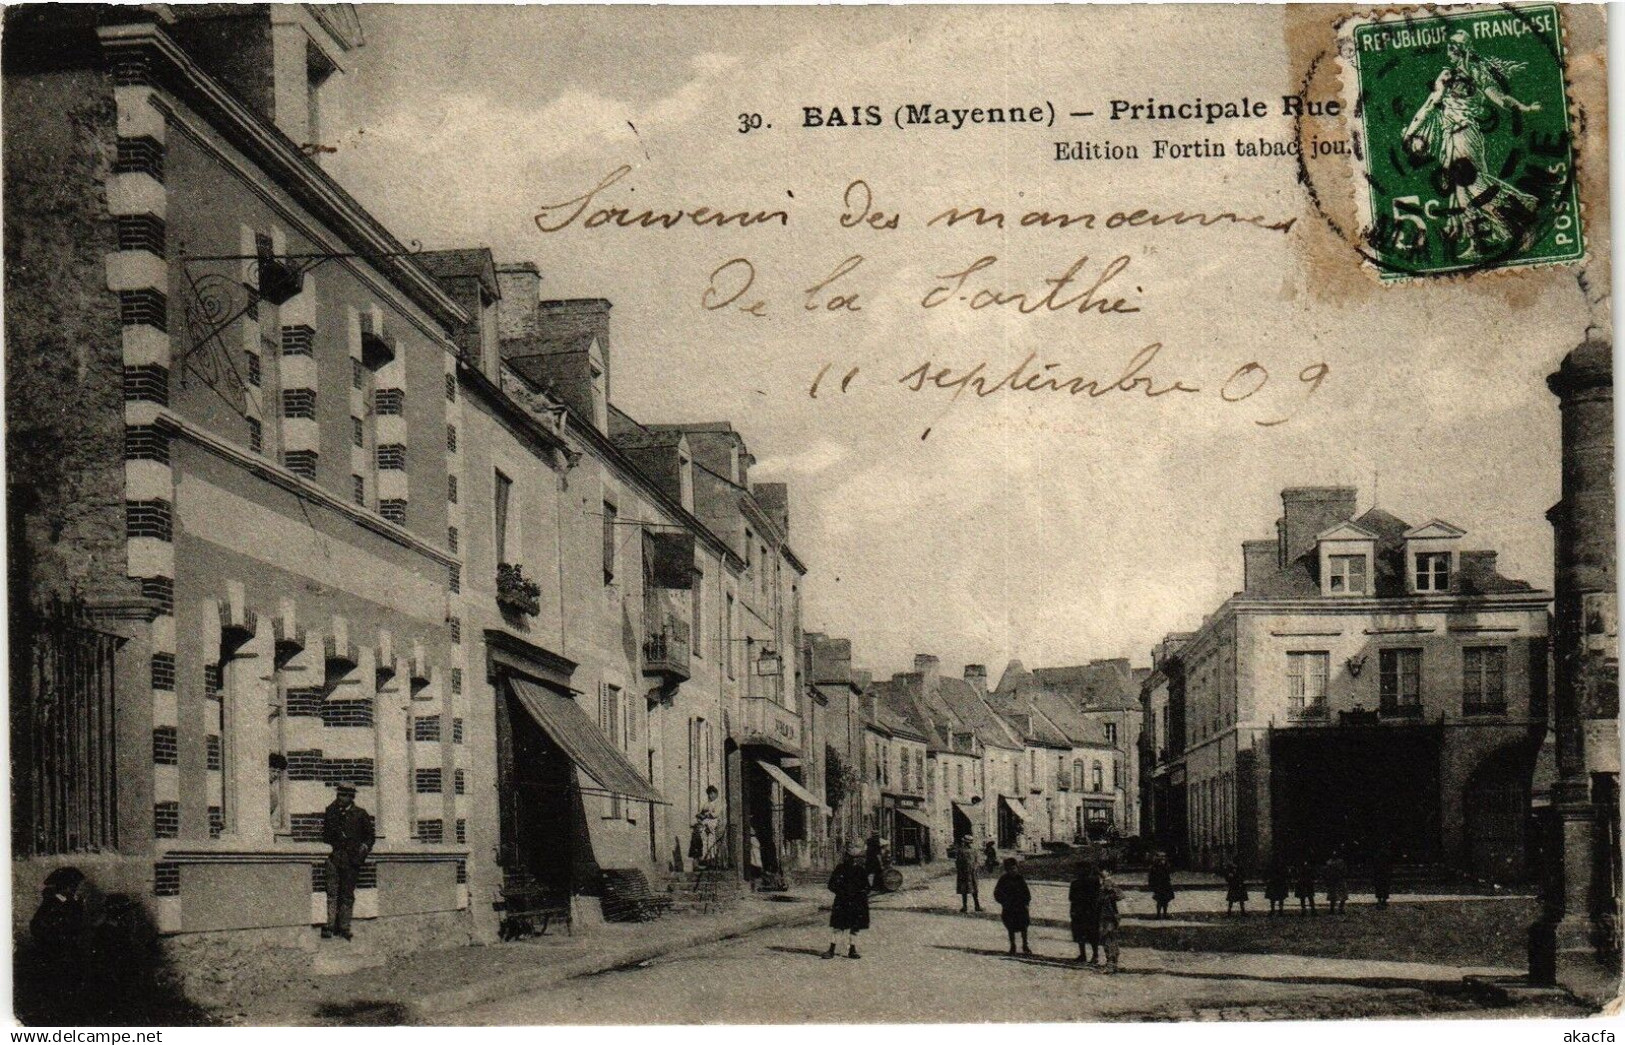 30. BAIS (Mayenne) — Principale Rue
Edition Fortin tabac jou
REPUBLIQUE FRANÇAISE
5c
POSTES
MAYENNE
Souvenir des manoeuvres
de la Sarthe
11 septembre 09
akacfa